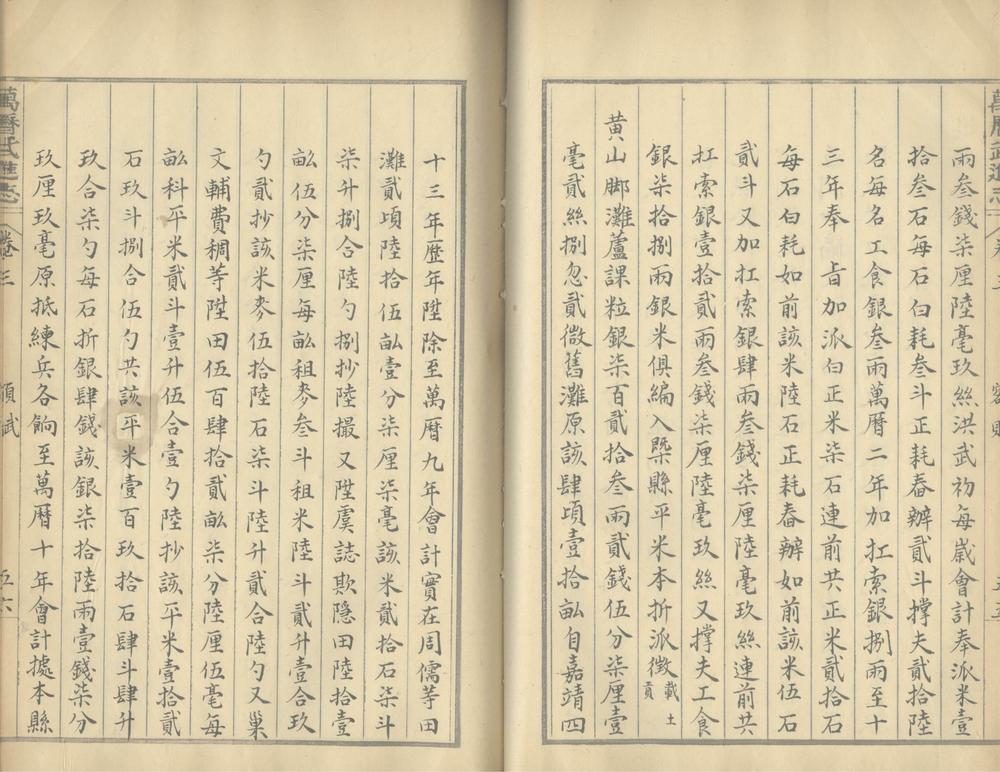 兩叁錢柒厘陸毫玖絲洪武初每歲會計奉派米壹
拾叁石每石白耗叁斗正耗舂辦貳斗撑夫貳拾陸
名每名工食銀叁兩萬曆二年加扛索銀捌兩至十
三年奉　旨加派白正米柒石連前共正米貳拾石
每石白耗如前該米陸石正耗舂辦如前該米伍石
貳斗又加扛索銀肆兩叁錢柒厘陸毫玖絲連前共
扛索銀壹拾貳兩叁錢柒厘陸毫玖絲又撑夫工食
銀柒拾捌兩銀米俱編入槩縣平米本折派徵載土貢
黄山脚灘蘆課粒銀柒百貳拾叁兩貳錢伍分柒厘壹
毫貳絲捌忽貳微舊灘原該肆頃壹拾畝自嘉靖四
十三年歷年陞除至萬曆九年會計實在周儒等田
灘貳頃陸拾伍畝壹分柒厘柒毫該米貳拾石柒斗
柒升捌合陸勺捌抄陸撮又陞虞誌欺隐田陸拾壹
畝伍分柒厘每畝租麥叁斗租米陸斗貳升壹合玖
勺貳抄該米麥伍拾陸石柒斗陸升貳合陸勺又巢
文輔費稠等陞田伍百肆拾貳畝柒分陸厘伍毫每
畝科平米貳斗壹升伍合壹勺陸抄該平米壹拾貳
石玖斗捌合伍勺共該平米壹百玖拾石肆斗肆升
玖合柒勺每石折銀肆錢該銀柒拾陸兩壹錢柒分
玖厘玖毫原抵練兵各餉至萬曆十年會計據本縣
萬曆武進志　卷三　額賦　五六